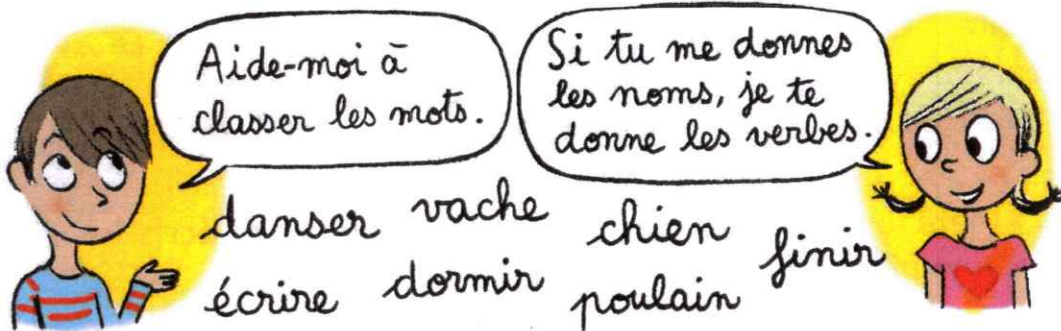 Aide-moi à
classer les mots.
Si tu me donnes
les noms, je te
donne les verbes.
danser vache chien finir
écrire dormir poulain